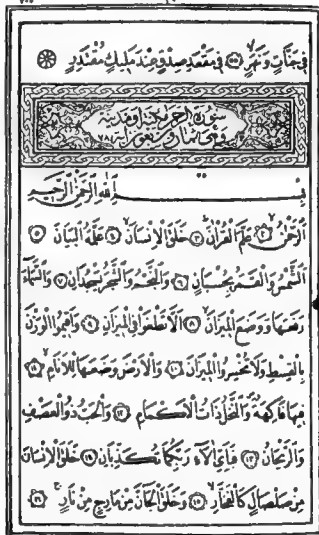 فِي جَنَّاتٍ وَنَهَرٍ فِي مَقْعَدِ صِدْقٍ عِنْدَ مَلِيكٍ مُقْتَدِرٍ
سورة الرحمن مكية او مدنية
وهي ثمان وسبعون اية ٧٨
بِسْمِ اللهِ الرَّحْمٰنِ الرَّحِيمِ
اَلرَّحْمٰنُ عَلَّمَ الْقُرْاٰنَ خَلَقَ الْاِنْسَانَ عَلَّمَهُ الْبَيَانَ
اَلشَّمْسُ وَالْقَمَرُ بِحُسْبَانٍ وَالنَّجْمُ وَالشَّجَرُ يَسْجُدَانِ وَالسَّمَاءَ
رَفَعَهَا وَوَضَعَ الْمِيزَانَ اَلَّا تَطْغَوْا فِي الْمِيزَانِ وَاَقِيمُوا الْوَزْنَ
بِالْقِسْطِ وَلَا تُخْسِرُوا الْمِيزَانَ وَالْاَرْضَ وَضَعَهَا لِلْاَنَامِ
فِيهَا فَاكِهَةٌ وَالنَّخْلُ ذَاتُ الْاَكْمَامِ وَالْحَبُّ ذُو الْعَصْفِ
وَالرَّيْحَانُ فَبِاَيِّ اٰلَاءِ رَبِّكُمَا تُكَذِّبَانِ خَلَقَ الْاِنْسَانَ
مِنْ صَلْصَالٍ كَالْفَخَّارِ وَخَلَقَ الْجَانَّ مِنْ مَارِجٍ مِنْ نَارٍ